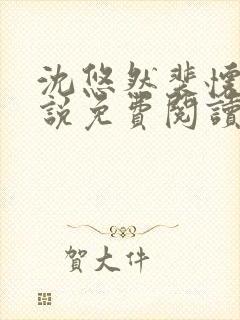 沈悠然裴懷
說免費閱讀
賀大件